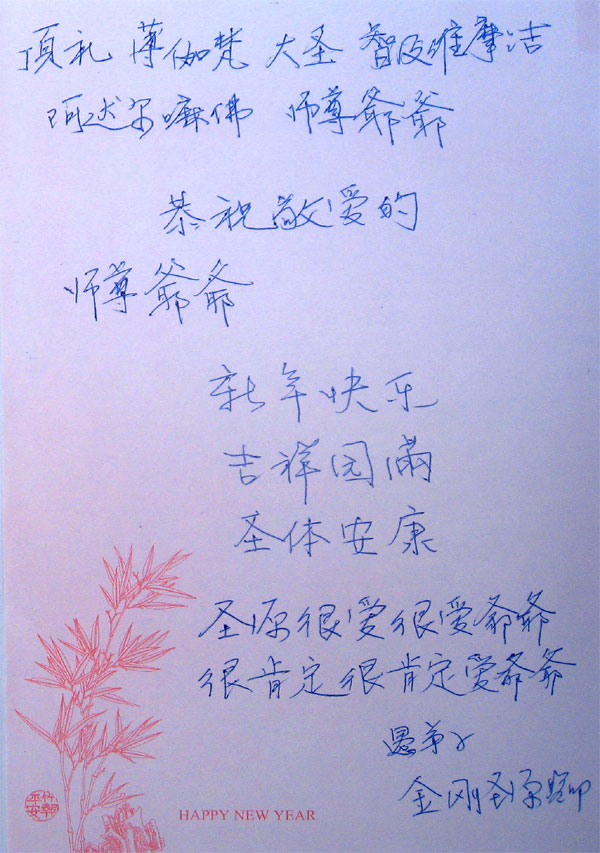 顶礼 薄伽梵 大圣 智及维摩洁
阿达尔嘛佛 师尊爷爷
恭祝敬爱的
师尊爷爷
新年快乐
吉祥园满
圣体安康
圣源很爱很爱爷爷
很肯定很肯定爱爷爷
愚弟子
金刚圣源
HAPPY NEW YEAR